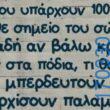 ου υπάρχουν 100
θε σημείο του σ
αδή αν βάλω κ
στα πόδια, τι θ
μπερδευτού
ρχίσουν παλι